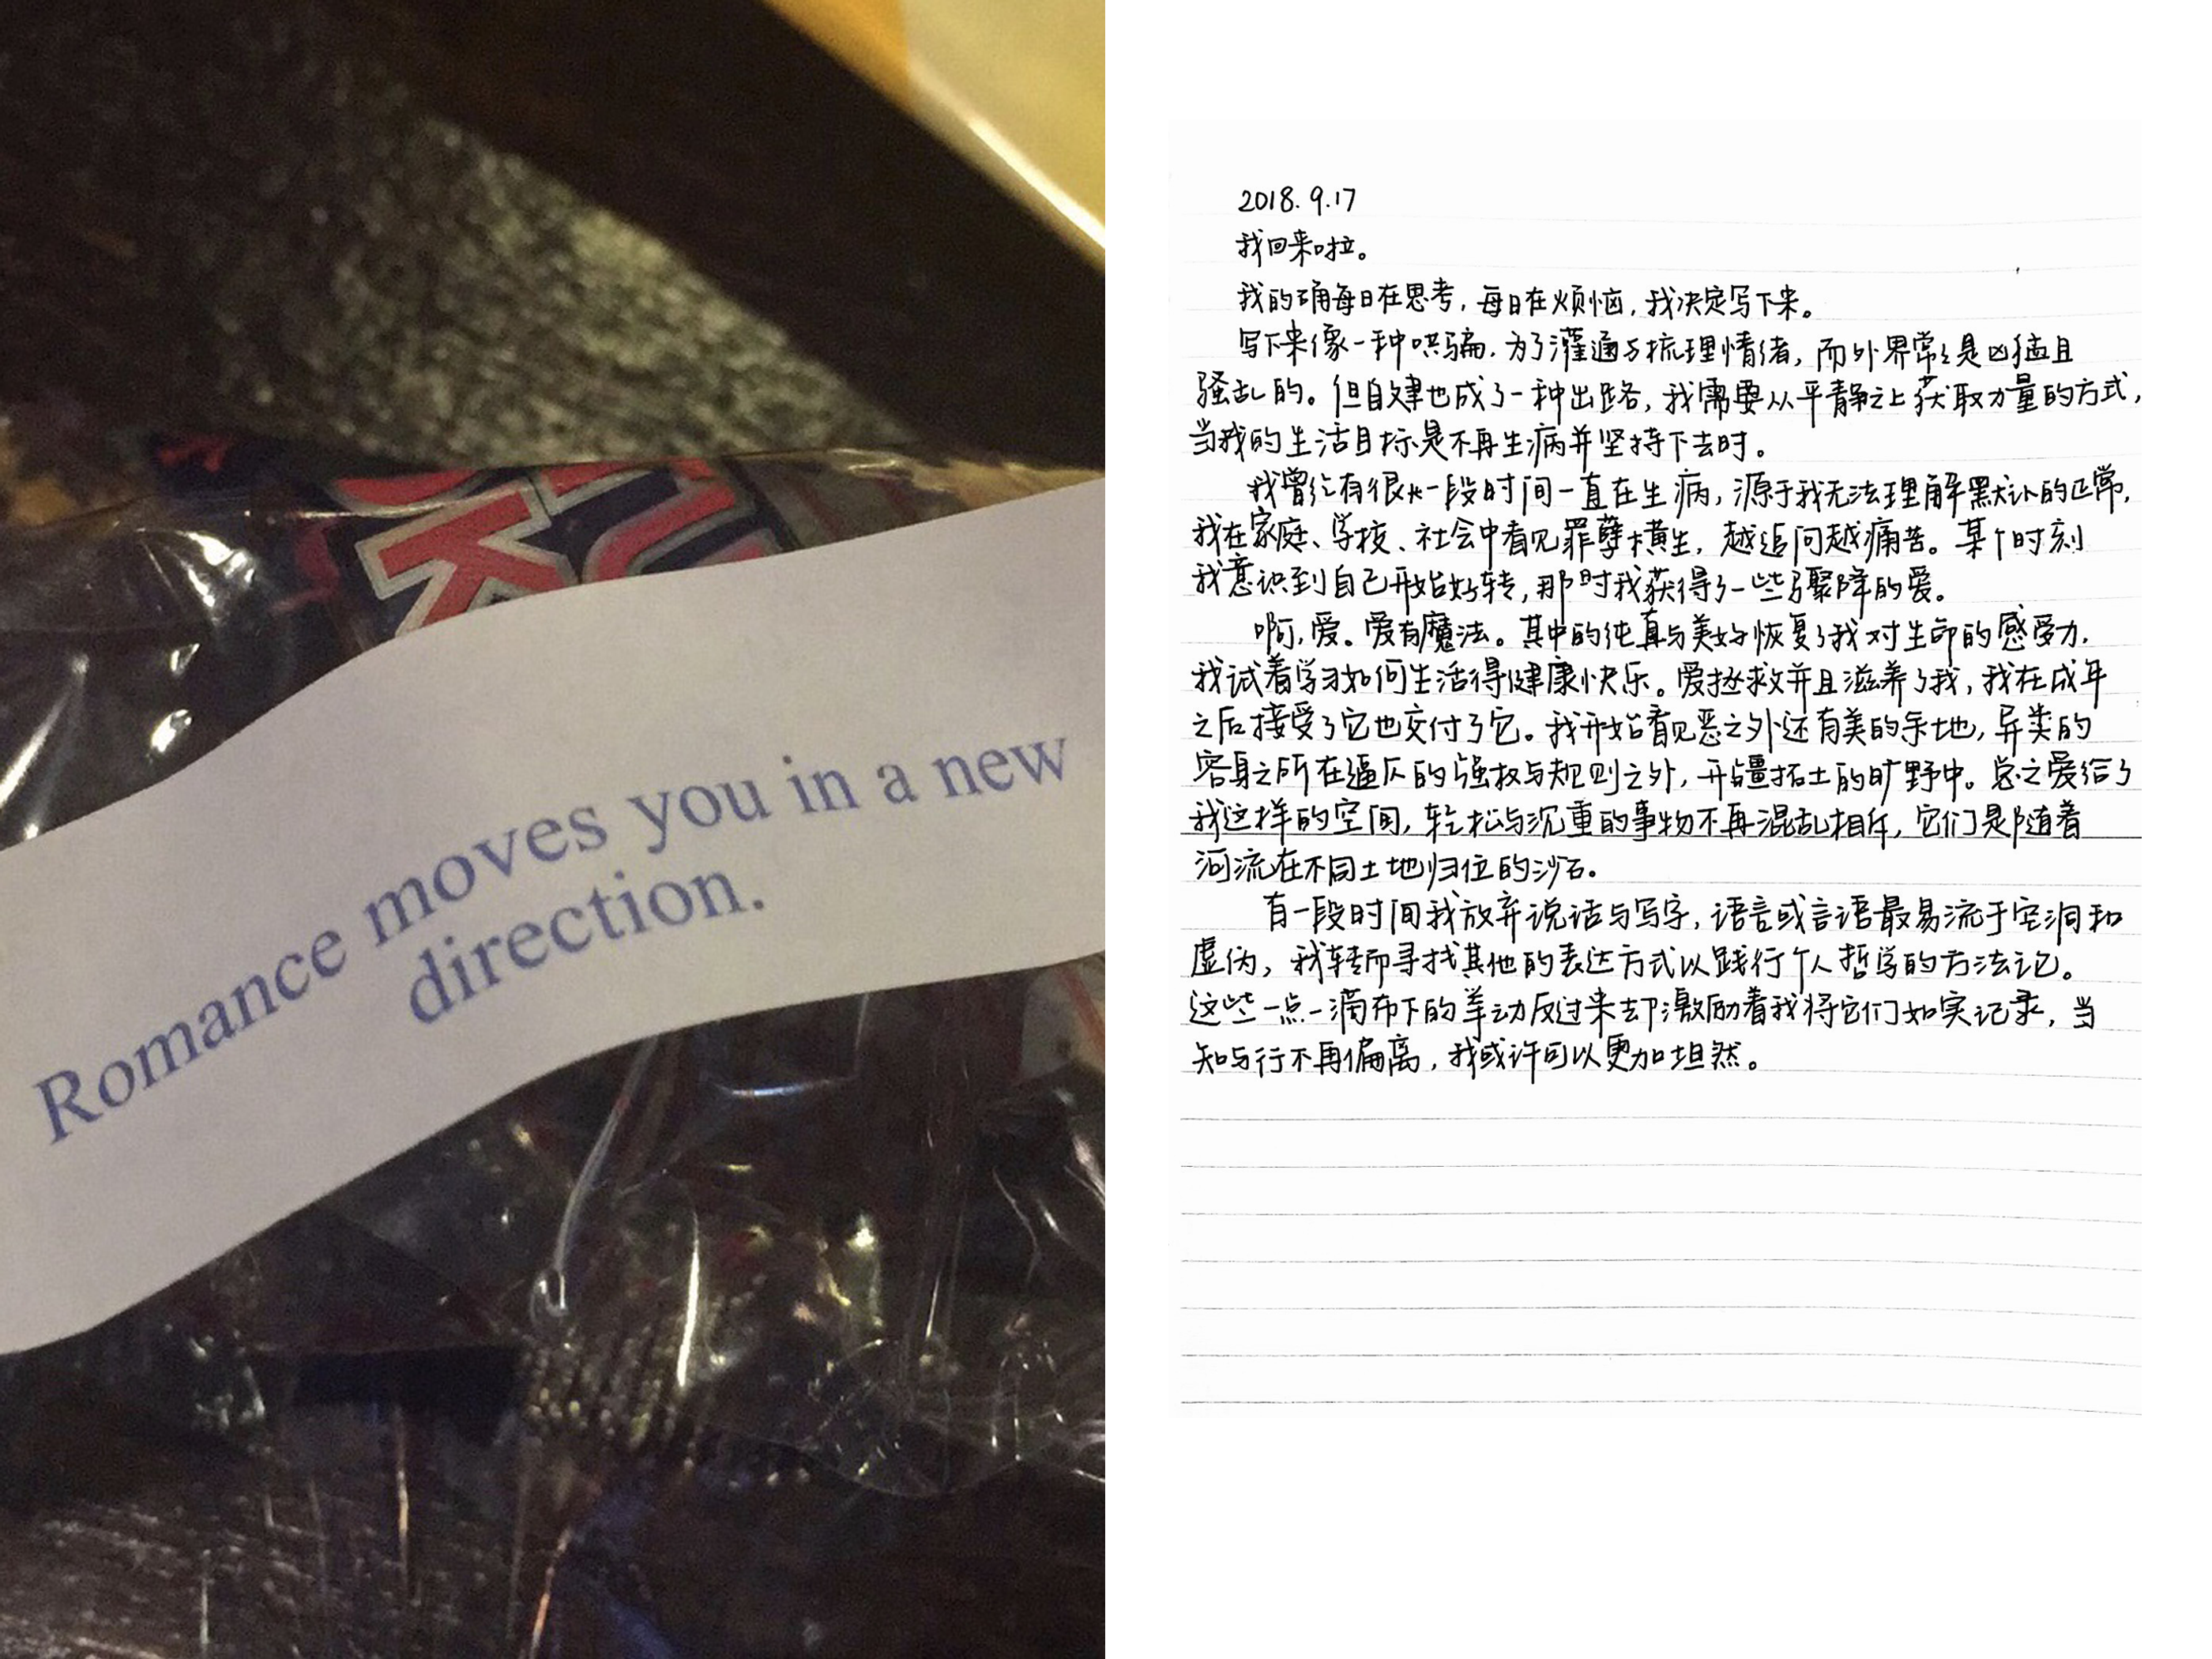 UK
Romance moves you in a new
direction.
2018.9.17
我回来啦。
我的确每日在思考，每日在烦恼，我决定写下来。
写下来像一种哄骗，为了灌通与梳理情绪，而外界常常是凶猛且
骚乱的。但自律也成了一种出路，我需要从平静之上获取力量的方式，
当我的生活目标是不再生病并坚持下去时。
我曾经有很长一段时间一直在生病，源于我无法理解默认的正常，
我在家庭、学校、社会中看见罪孽横生，越追问越痛苦。某个时刻
我意识到自己开始好转，那时我获得了一些骤降的爱。
啊，爱。爱有魔法。其中的纯真与美好恢复了我对生命的感受力，
我试着学习如何生活得健康快乐。爱拯救并且滋养了我，我在成年
之后接受了它也交付了它。我开始看见恶之外还有美的余地，异类的
容身之所在逼仄的强权与规则之外，开疆拓土的旷野中。总之爱给了
我这样的空间，轻松与沉重的事物不再混乱相斥，它们是随着
河流在不同土地归位的沙石。
有一段时间我放弃说话与写字，语言或言语最易流于空洞和
虚伪，我转而寻找其他的表达方式以践行个人哲学的方法记。
这些一点一滴布下的举动反过来却激励着我将它们如实记录，当
知与行不再偏离，我或许可以更加坦然。